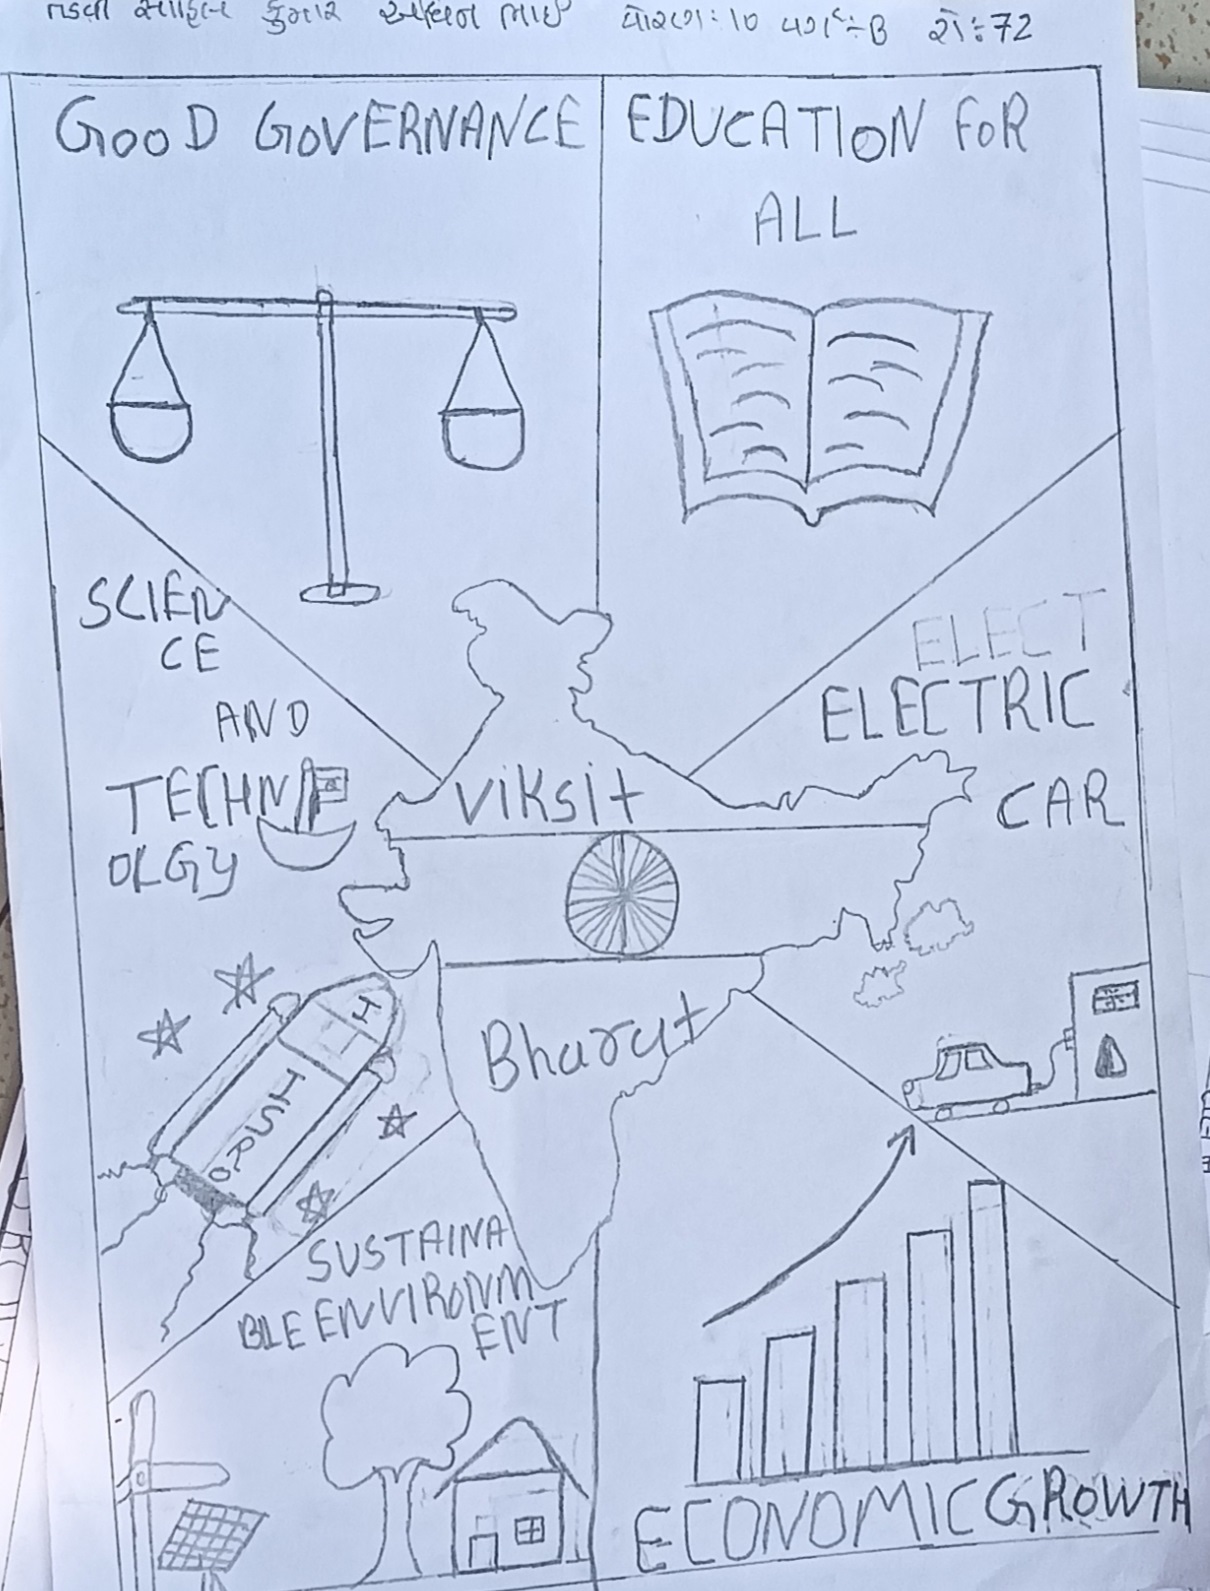 કુમાર ભાઈ ધોરણ:10 વર્ગ:-B રો:72
GOOD GOVERNANCE
EDUCATION FOR
ALL
SCIEN
CE
AND
TECHN
OLGY
ELECT
ELECTRIC
CAR
Viksit
Bharat
ISRO
SUSTAINA
BLE ENVIRONM
ENT
ECONOMIC GROWTH